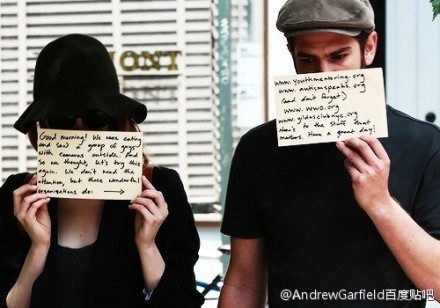 MONT
Good morning! We were eating
and saw a group of guys
with cameras outside. And
so we thought, let's try this
again. We don't need the
attention, but these wonderful
organizations do: →
www.youthmentoring.org
www.autismspeaks.org
(and don't forget)
www.wwo.org
www.gildasclubnyc.org
Here's to the stuff that
matters. Have a great day!
@AndrewGarfield百度贴吧